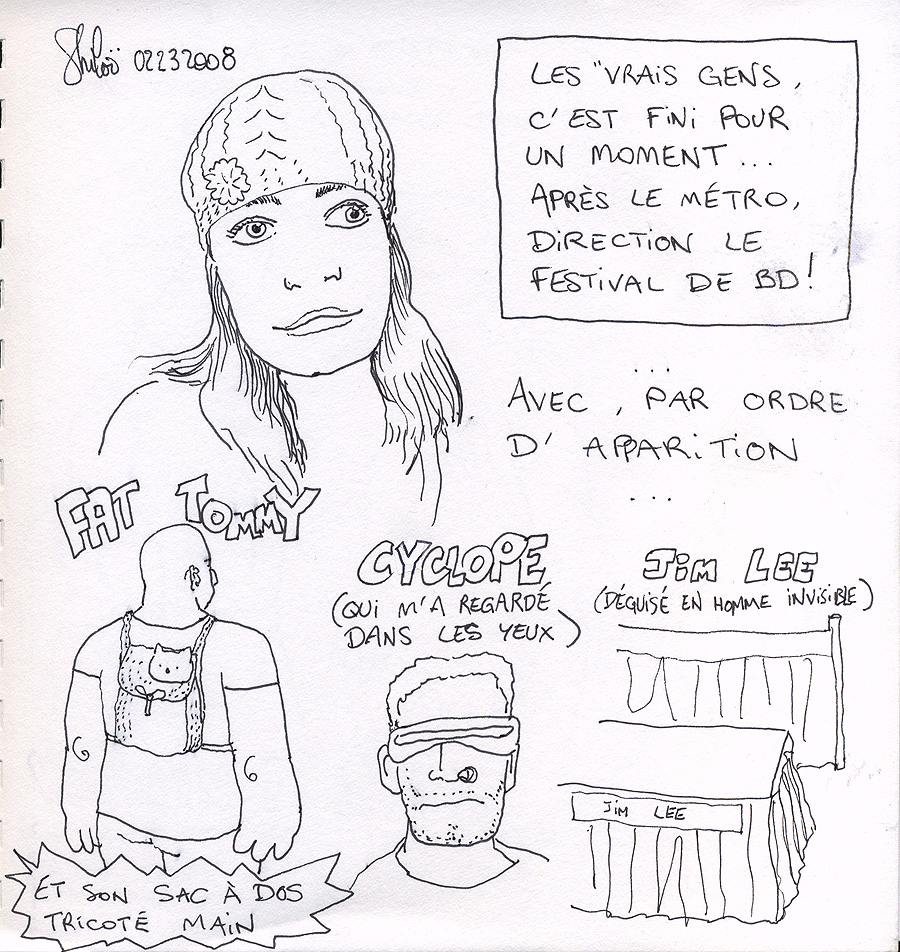 02232008
LES "VRAIS GENS,
C'EST FINI POUR
UN MOMENT...
APRÈS LE MÉTRO,
DIRECTION LE
FESTIVAL DE BD!
...
AVEC, PAR ORDRE
D'APPARITION
...
FAT TOMMY
ET SON SAC À DOS
TRICOTÉ MAIN
CYCLOPE
(QUI M'A REGARDÉ
DANS LES YEUX)
JIM LEE
(DÉGUISÉ EN HOMME INVISIBLE)
JIM LEE